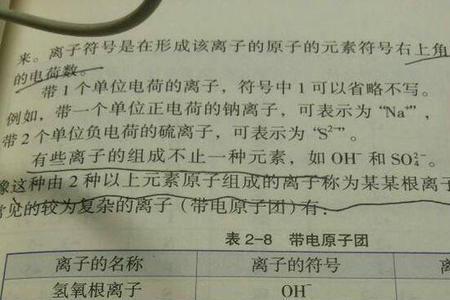 来。离子符号是在形成该离子的原子的元素符号右上角
的电荷数。
带1个单位电荷的离子，符号中1可以省略不写。
例如，带一个单位正电荷的钠离子，可表示为“Na⁺”，
带2个单位负电荷的硫离子，可表示为“S²⁻”。
有些离子的组成不止一种元素，如 OH⁻ 和 SO₄²⁻。
像这种由2种以上元素原子组成的离子称为某某根离子
常见的较为复杂的离子（带电原子团）有：
表 2-8 带电原子团
离子的名称 离子的符号
氢氧根离子 OH⁻